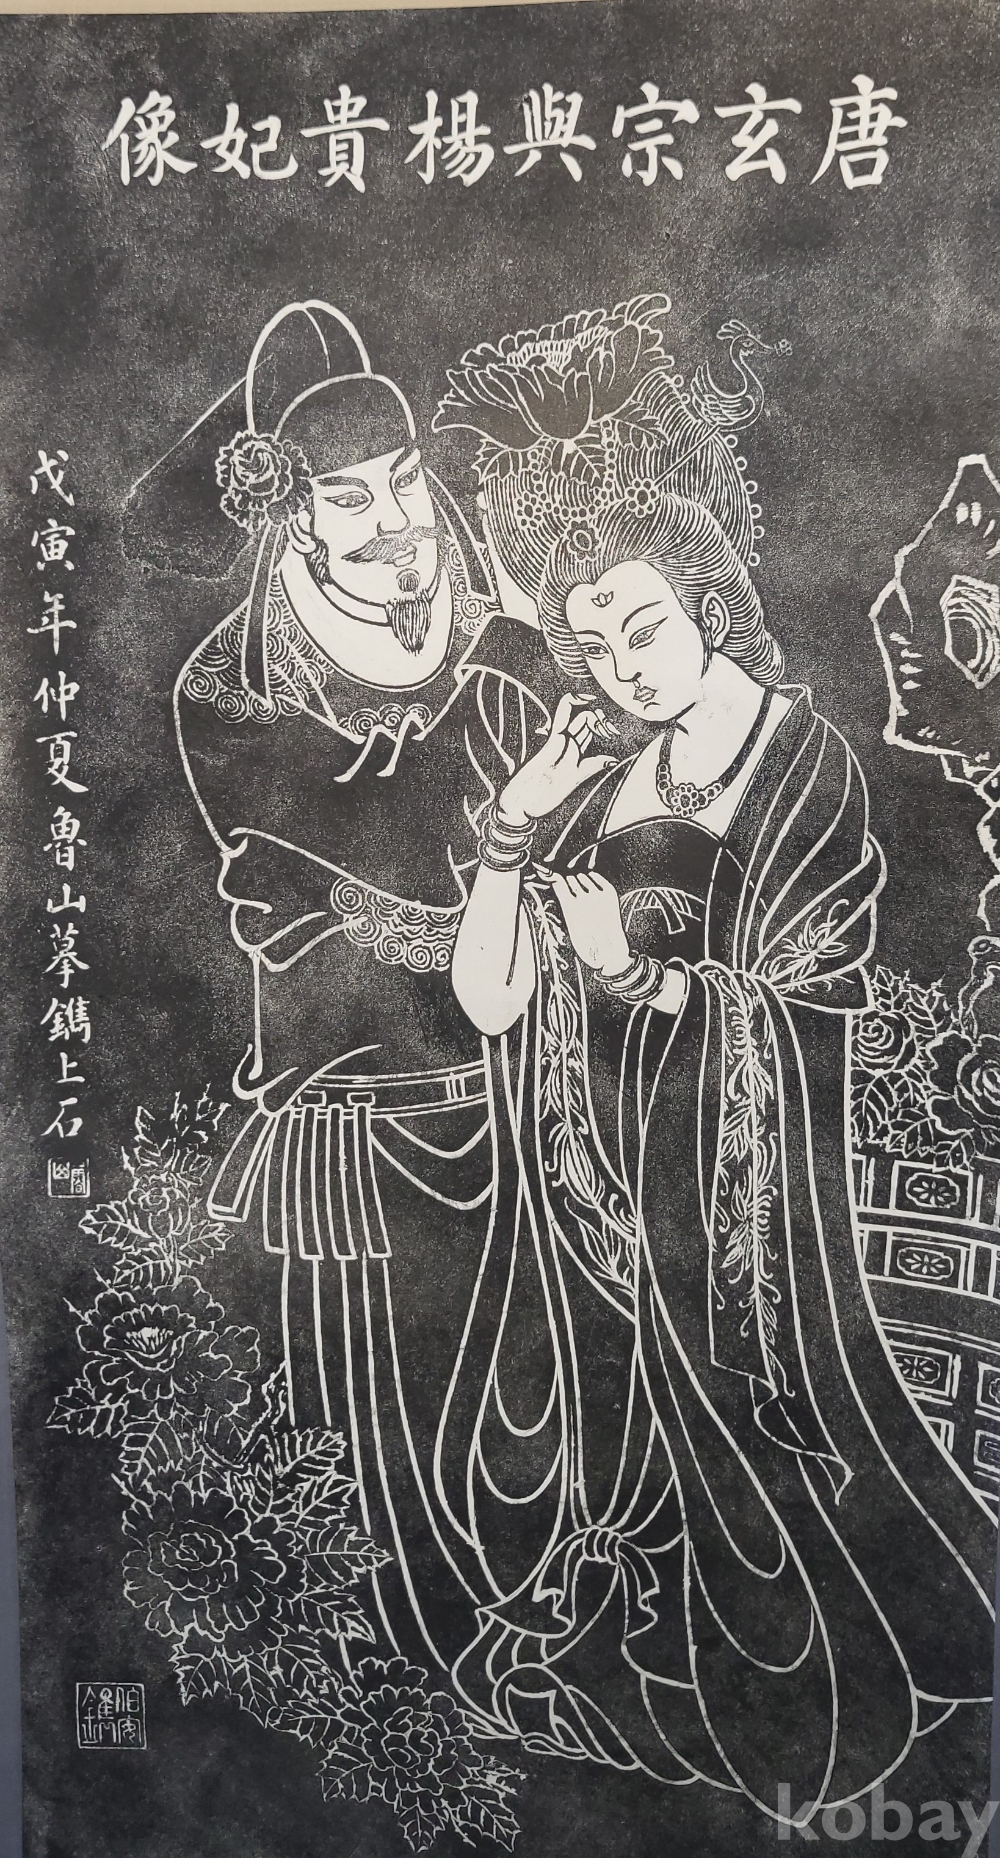 唐玄宗與楊貴妃像
戊寅年仲夏魯山摹鐫上石
伯安鐫
kobay